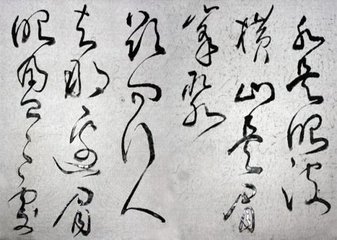 水是眼波
橫山是眉
峯聚
欲問行人
去那邊眉
眼盈々處